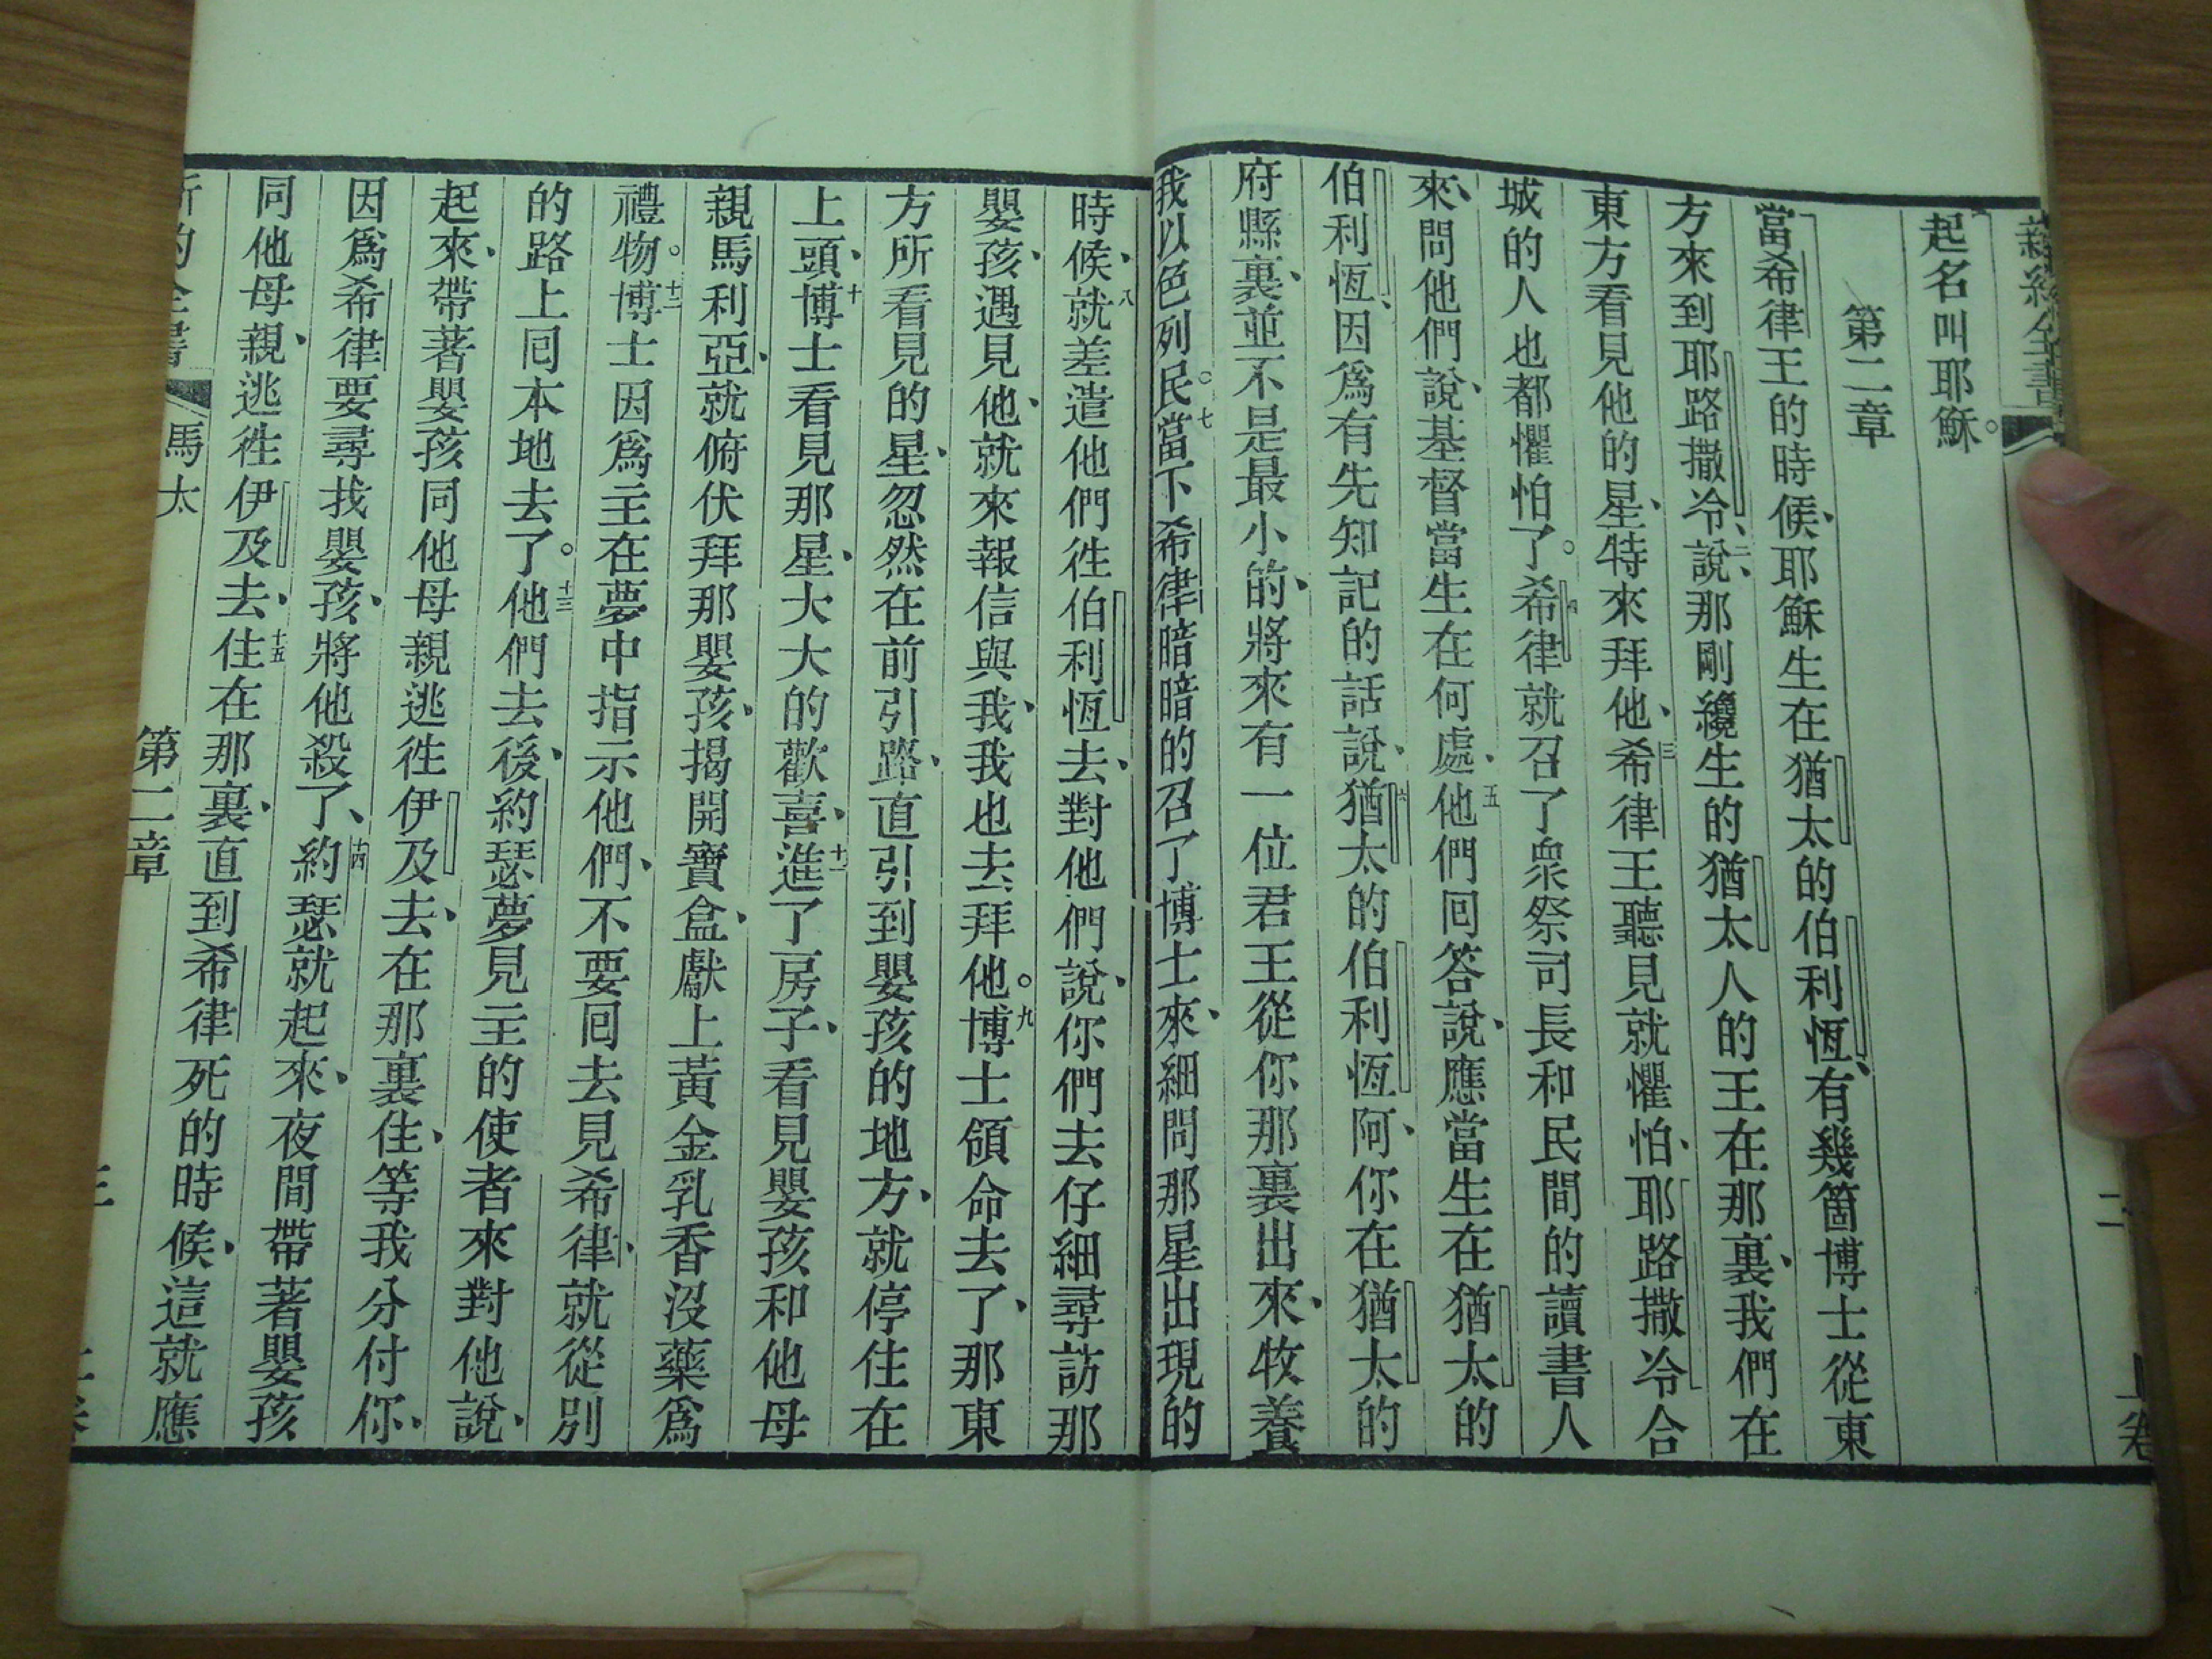 新約全書
二
上卷
起名叫耶穌。
第二章
當希律王的時候、耶穌生在猶太的伯利恆、有幾箇博士從東
方來到耶路撒冷、二說、那剛纔生的猶太人的王在那裏、我們在
東方看見他的星、特來拜他、三希律王聽見就懼怕、耶路撒冷合
城的人也都懼怕了。四希律就召了衆祭司長和民間的讀書人
來、問他們說、基督當生在何處、五他們囘答說、應當生在猶太的
伯利恆、因爲有先知記的話說、六猶太的伯利恆阿、你在猶太的
府縣裏、並不是最小的、將來有一位君王從你那裏出來、牧養
我以色列民。七當下希律暗暗的召了博士來、細問那星出現的
時候、八就差遣他們徃伯利恆去、對他們說、你們去仔細尋訪那
嬰孩、遇見他、就來報信與我、我也去拜他。九博士領命去了、那東
方所看見的星、忽然在前引路、直引到嬰孩的地方、就停住在
上頭、十博士看見那星、大大的歡喜、十一進了房子、看見嬰孩和他母
親馬利亞、就俯伏拜那嬰孩、揭開寶盒、獻上黃金乳香沒藥爲
禮物。十二博士因爲主在夢中指示他們、不要囘去見希律、就從別
的路上囘本地去了。十三他們去後、約瑟夢見主的使者來對他說、
起來、帶著嬰孩同他母親逃徃伊及去、在那裏住、等我分付你、
因爲希律要尋找嬰孩、將他殺了、十四約瑟就起來、夜間帶著嬰孩
同他母親、逃徃伊及去、十五住在那裏、直到希律死的時候、這就應
新約全書
馬太
第二章
三
上卷